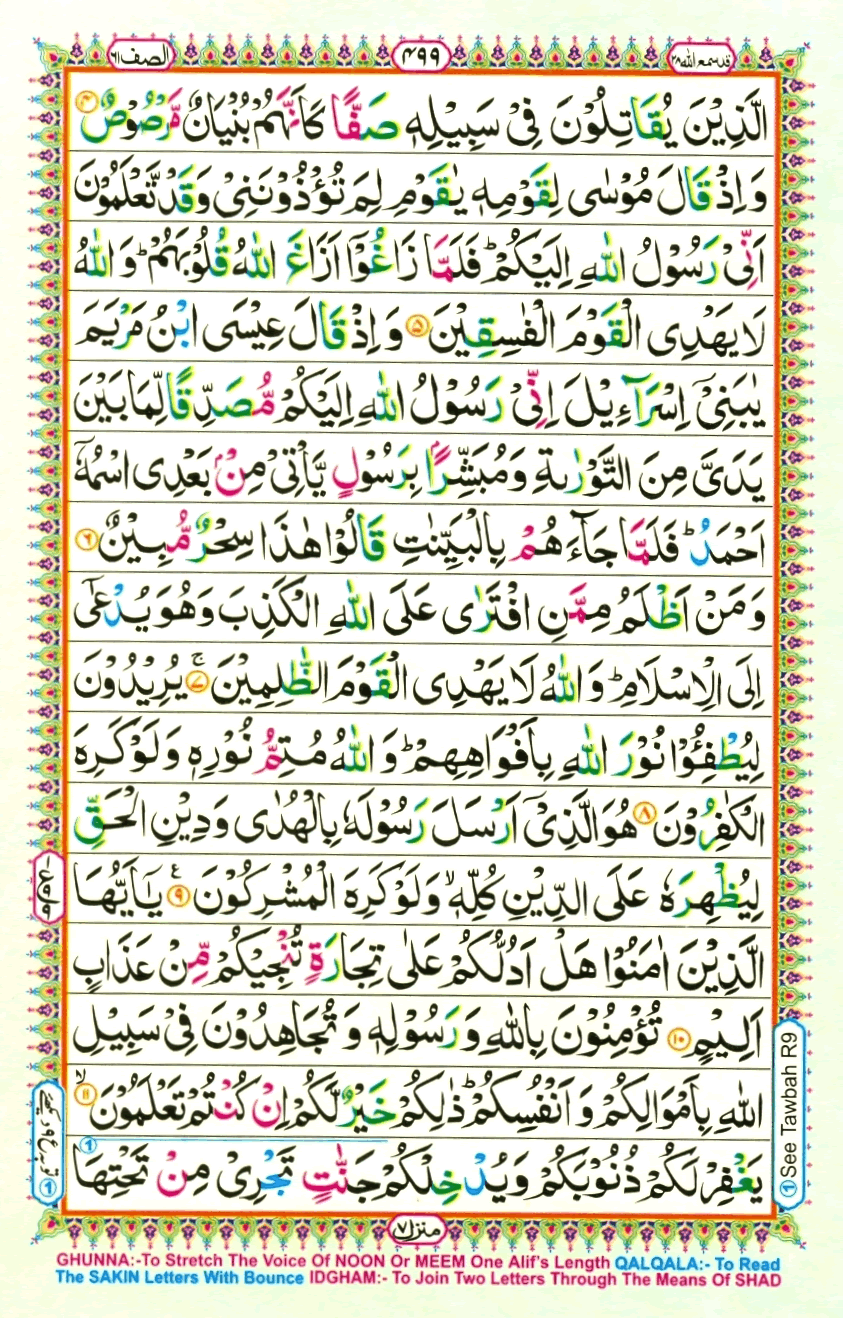 قد سمع الله ۲۸
۴۹۹
الصف ۶۱
الَّذِيْنَ يُقَاتِلُوْنَ فِيْ سَبِيْلِهٖ صَفًّا كَاَنَّهُمْ بُنْيَانٌ مَّرْصُوْصٌ ۴
وَاِذْ قَالَ مُوْسٰى لِقَوْمِهٖ يٰقَوْمِ لِمَ تُؤْذُوْنَنِيْ وَقَدْ تَّعْلَمُوْنَ
اَنِّيْ رَسُوْلُ اللّٰهِ اِلَيْكُمْ ؕ فَلَمَّا زَاغُوْۤا اَزَاغَ اللّٰهُ قُلُوْبَهُمْ ؕ وَاللّٰهُ
لَا يَهْدِى الْقَوْمَ الْفٰسِقِيْنَ ۵ وَاِذْ قَالَ عِيْسَى ابْنُ مَرْيَمَ
يٰبَنِيْۤ اِسْرَآءِيْلَ اِنِّيْ رَسُوْلُ اللّٰهِ اِلَيْكُمْ مُّصَدِّقًا لِّمَا بَيْنَ
يَدَيَّ مِنَ التَّوْرٰىةِ وَمُبَشِّرًۢا بِرَسُوْلٍ يَّاْتِيْ مِنْۢ بَعْدِى اسْمُهٗۤ
اَحْمَدُ ؕ فَلَمَّا جَآءَهُمْ بِالْبَيِّنٰتِ قَالُوْا هٰذَا سِحْرٌ مُّبِيْنٌ ۶
وَمَنْ اَظْلَمُ مِمَّنِ افْتَرٰى عَلَى اللّٰهِ الْكَذِبَ وَهُوَ يُدْعٰۤى
اِلَى الْاِسْلَامِ ؕ وَاللّٰهُ لَا يَهْدِى الْقَوْمَ الظّٰلِمِيْنَ ۷ۚ يُرِيْدُوْنَ
لِيُطْفِـُٔوْا نُوْرَ اللّٰهِ بِاَفْوَاهِهِمْ ؕ وَاللّٰهُ مُتِمُّ نُوْرِهٖ وَلَوْ كَرِهَ
الْكٰفِرُوْنَ ۸ هُوَ الَّذِيْۤ اَرْسَلَ رَسُوْلَهٗ بِالْهُدٰى وَدِيْنِ الْحَقِّ
لِيُظْهِرَهٗ عَلَى الدِّيْنِ كُلِّهٖ ۙ وَلَوْ كَرِهَ الْمُشْرِكُوْنَ ۹ۧ يٰۤاَيُّهَا
الَّذِيْنَ اٰمَنُوْا هَلْ اَدُلُّكُمْ عَلٰى تِجَارَةٍ تُنْجِيْكُمْ مِّنْ عَذَابٍ
اَلِيْمٍ ۱۰ تُؤْمِنُوْنَ بِاللّٰهِ وَرَسُوْلِهٖ وَتُجَاهِدُوْنَ فِيْ سَبِيْلِ
اللّٰهِ بِاَمْوَالِكُمْ وَاَنْفُسِكُمْ ؕ ذٰلِكُمْ خَيْرٌ لَّكُمْ اِنْ كُنْتُمْ تَعْلَمُوْنَ ۱۱ۙ
يَغْفِرْ لَكُمْ ذُنُوْبَكُمْ وَيُدْخِلْكُمْ جَنّٰتٍ تَجْرِيْ مِنْ تَحْتِهَا
① See Tawbah R9
منزل ۷
GHUNNA:-To Stretch The Voice Of NOON Or MEEM One Alif's Length QALQALA:- To Read
The SAKIN Letters With Bounce IDGHAM:- To Join Two Letters Through The Means Of SHAD